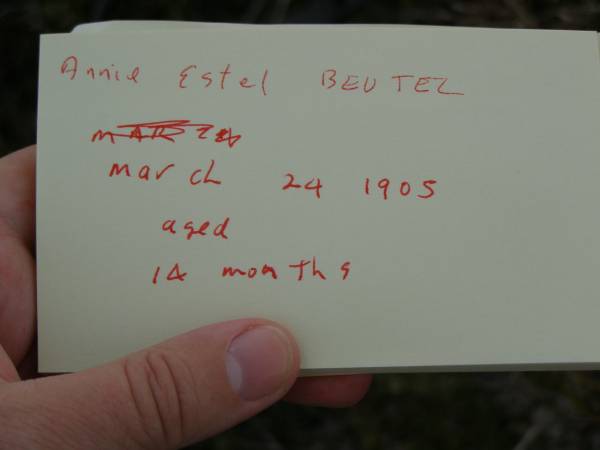 Annie Estel BEUTEL
March 24 1905
aged
14 months